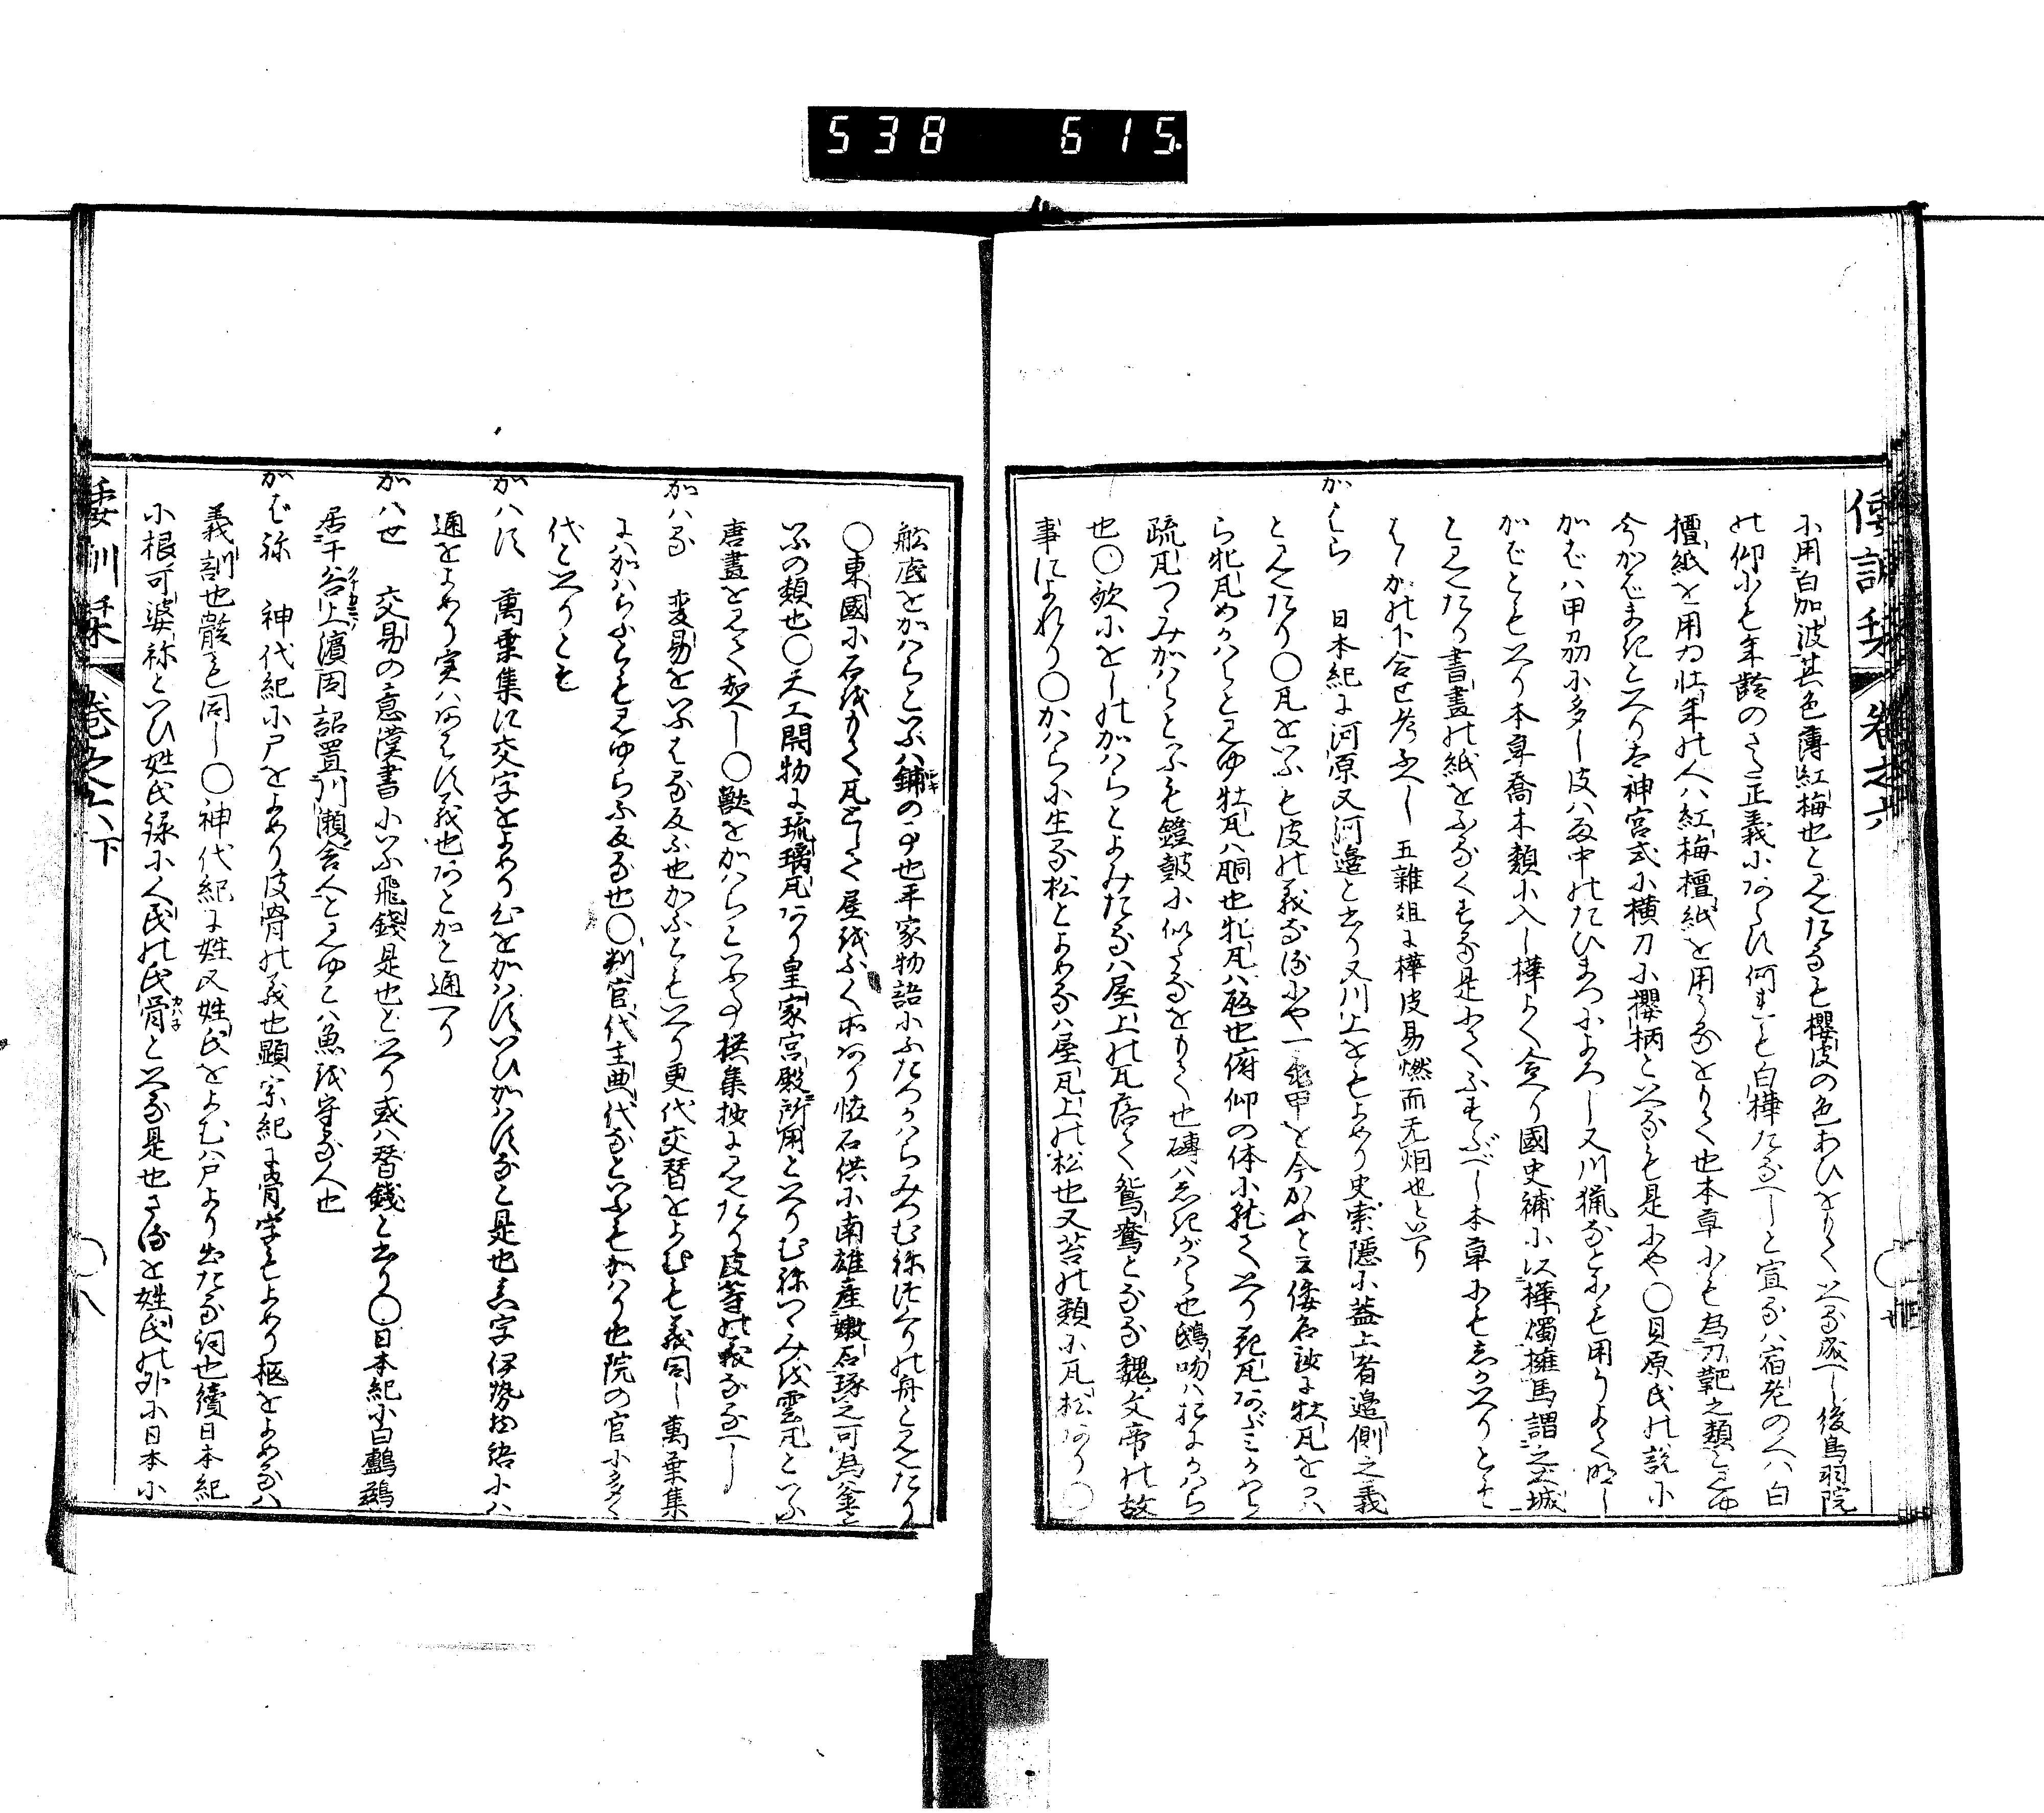 538 615
倭訓栞 巻之六
に用白加波其色薄紅梅也と見えたるも櫻皮の色あひをもていへる成へし後鳥羽院
の仰にも年齡のさた正義にあらす何れも白樺たるへしと宣るハ宿老の人ハ白
檀紙を用ゐ壮年の人ハ紅梅檀紙を用うるをもて也本草にも為刀靶之類と見ゆ
今かばまきといへり太神宮式に横刀に櫻柄といへるも是にや○貝原氏の説に
かばハ甲刕に多し皮ハ雨中のたひまつによろし又川猟なとにも用うよく明し
かばともいへり本草喬木類に入し樺よく合へり國史補に以樺燭擁馬謂之火城
と見えたり書畫の紙をふるくする是にてふすぶべし本草にもしかいへりとそ
はゝかの下合せ考ふへし 五雜爼に樺皮易燃而无烟也といへり
かはら 日本紀に河原又河邉と書り又川上をもよめり史索隱に蓋上者邉側之義
と見えたり○瓦をいふも皮の義なる由にや一亀甲を今かふと云倭名鈔に牡瓦をつゝ
ら牝瓦めかハらと見ゆ牡瓦ハ𤭁也牝瓦ハ瓪也俯仰の体に就ていへり花瓦あぶミかハら
疏瓦つゝみかハらといふも鐙皷に似たるをもて也磚ハしきがハら也鴟吻ハおにかハら
也○歌にをしのかハらとよみたるハ屋上の瓦落て鴛鴦となる魏文帝の故
事によれり○かハらに生る松とよめるハ屋瓦上の松也又苔の類に瓦松あり○
舩底をかハらといふハ鋪の事也平家物語にふたつかハらみつむね作りの舟と見えたり
○東國に石をもて瓦として屋をふく所あり恠石供に南雄産嫩石琢之可為釜と
いふの類也○天工開物に琉璃瓦あり皇家宮殿所用といへりむねつゝみを雲瓦といふ
唐畫を見て知へし○獣をかハらといふ事撰集抄に見えたり皮等の義なるへし
かハる 変易をいふはる反ふ也かふともいへり更代交替をよむも義同し萬葉集
にハかハらふとも見ゆらふ反る也○判官代主典代なといふもかハり也院の官に多く
代といへりとそ
かハす 萬葉集に交字をよめり心をかハすいひかハすなと是也真字伊勢物語にハ
通をよめり実ハあはす義也あとかと通へり
かハせ 交易の意漢書にいふ飛錢是也といへり或ハ替錢と書り○日本紀に白鸕鷀
居于谷上濱因詔置川瀬舎人と見ゆこハ魚を守る人也
かばね 神代紀に尸をよめり皮骨の義也顕宗紀に骨字もよめり柩をよめるハ
義訓也骸も同し○神代紀に姓又姓氏をよむハ尸より出たる詞也續日本紀
に根可婆祢といひ姓氏録に人民の氏骨といへる是也さるを姓氏の外に日本に
倭訓栞 巻之六下 ○八